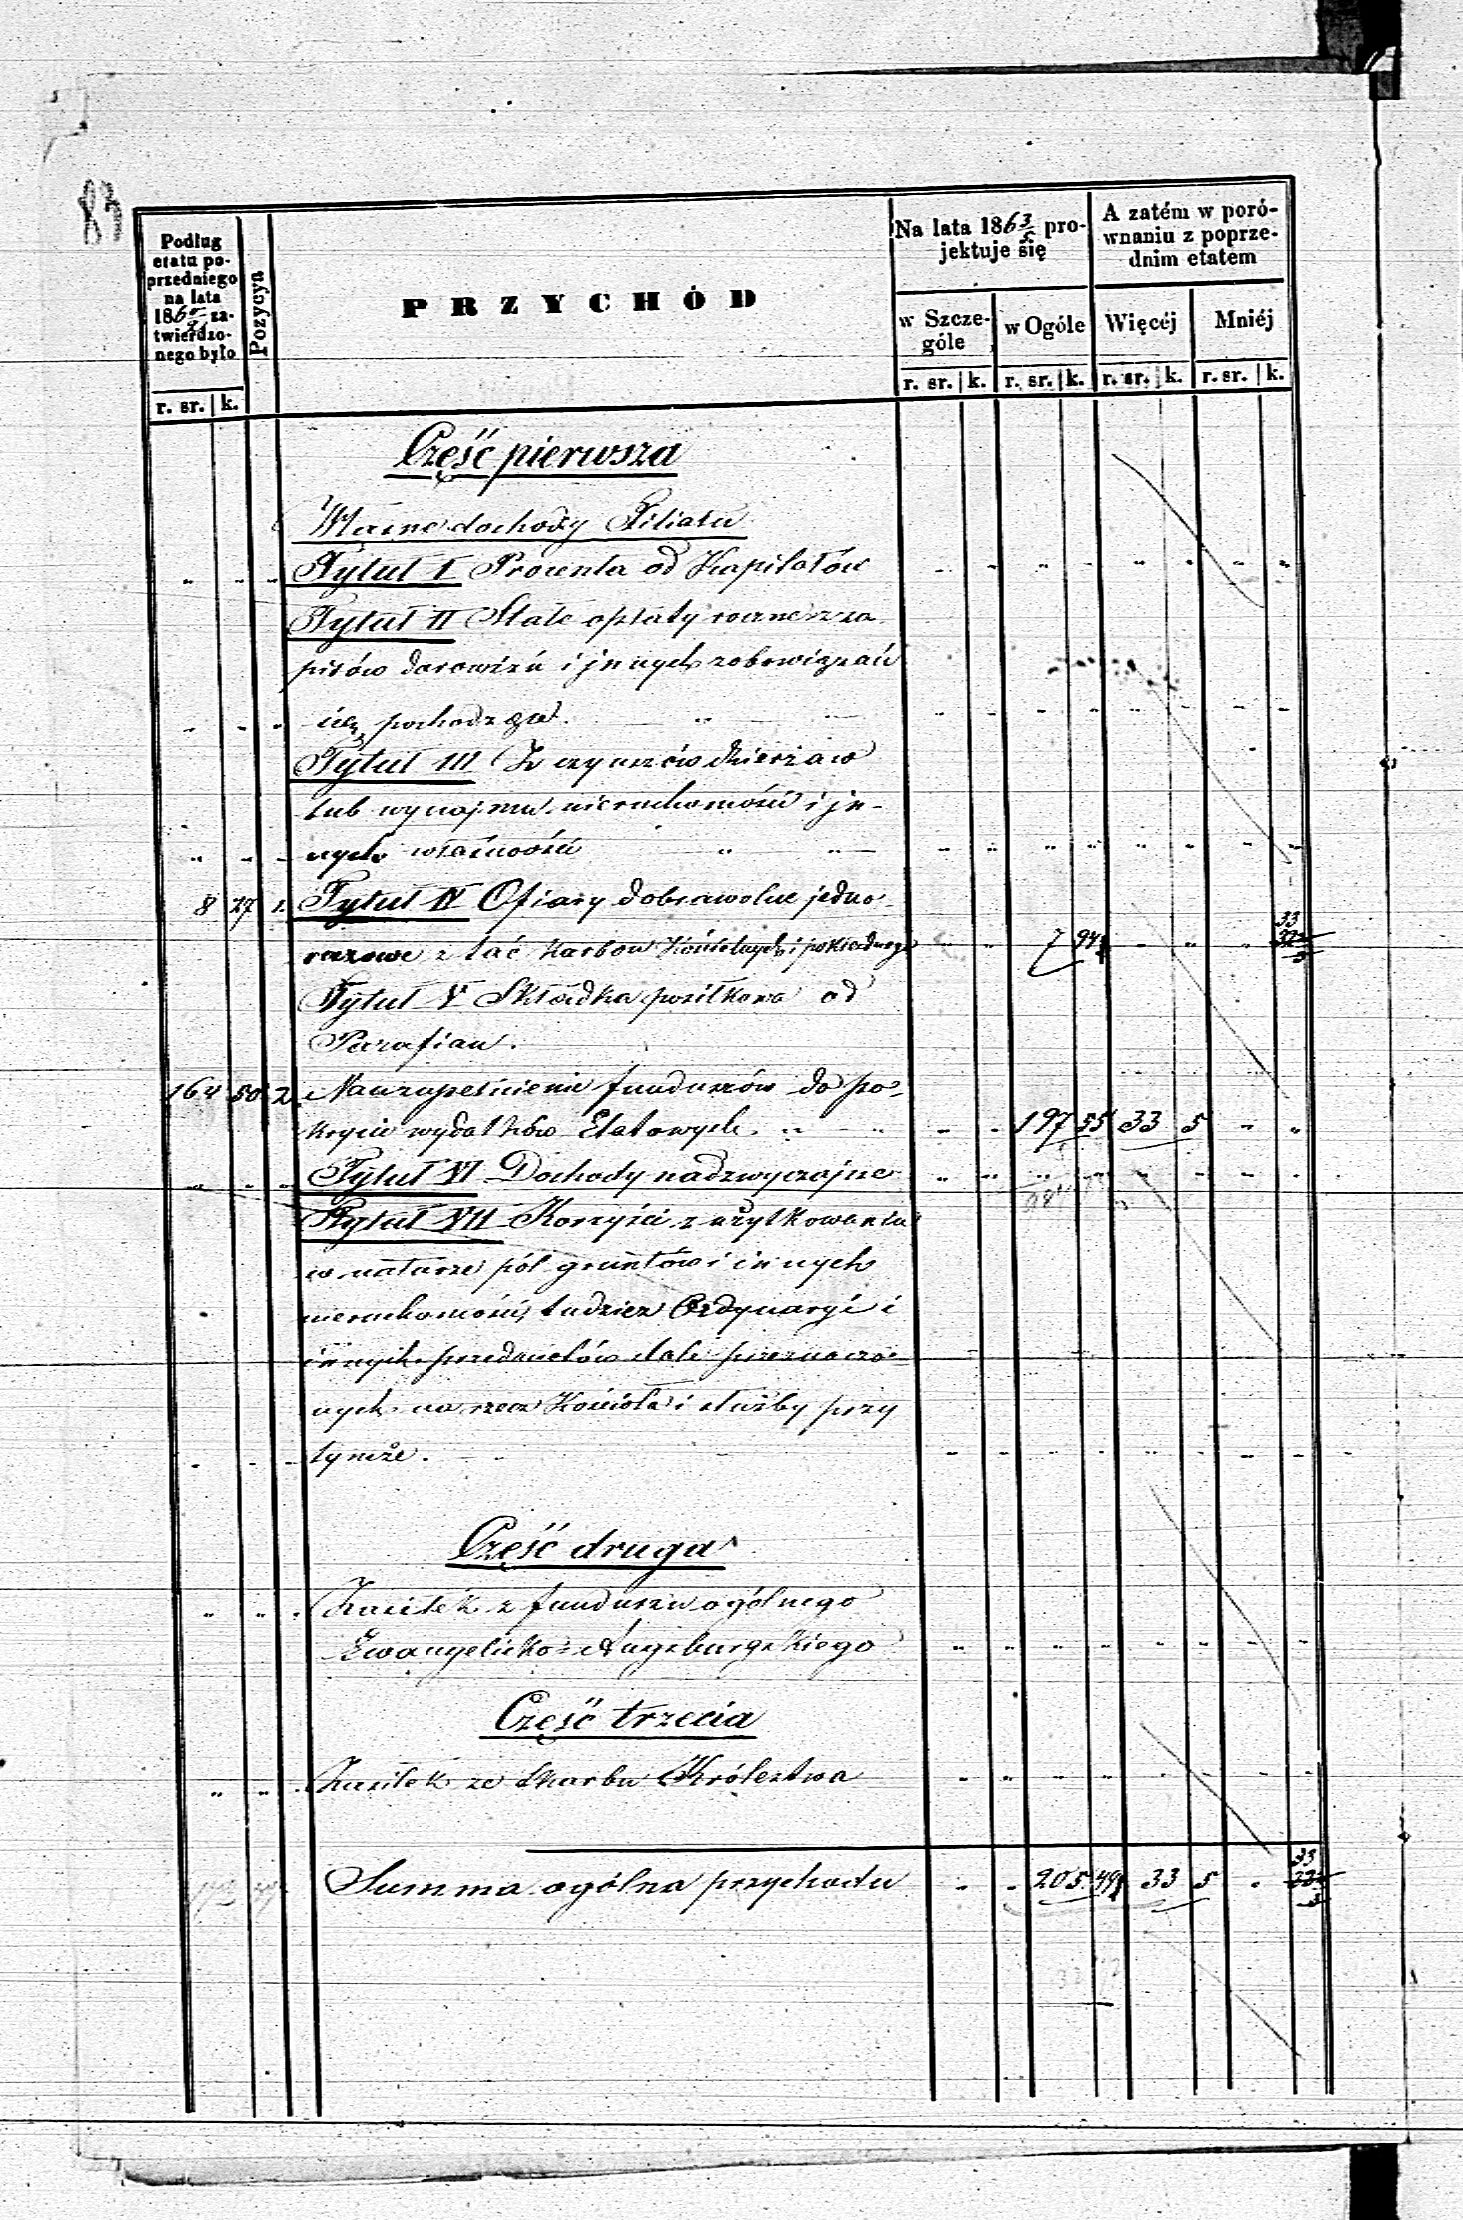 83
Podług etatu poprzedniego na lata 1860/2 zatwierdzonego było
Pozycya
PRZYCHÓD
Na lata 1863/5 projektuje się
A zatém w porównaniu z poprzednim etatem
w Szczególe
w Ogóle
Więcéj
Mniéj
r. sr. k.
r. sr. k. r. sr. k. r. sr. k. r. sr. k.
Część pierwsza
Własne dochody Filiału
Tytuł I Procenta od Kapitałów
Tytuł II Stałe opłaty roczne z za
pisów darowizn i jnnych zobowiązań
się pochodzące.
Tytuł III Z czynszów dzierżaw
lub wynajmu nieruchomości i jn-
nych własności
8 27 1. Tytuł IV Ofiary dobrowolne jedno
razowe z tac karbon Kościelnych i pokładnego 7 94½ 33 32½ 3
Tytuł V Składka posiłkowa od
Parafian.
164 50 2. Na uzupełnienie funduszów do po-
krycia wydatków Etatowych. 197 55 33 5
Tytuł VI Dochody nadzwyczajne
Tytuł VII Korzyści z użytkowania
w naturze pól gruntów i innych
nieruchomości, tudzież Ordynaryi i
innych produktów stale przeznaczo-
nych na rzecz Kościoła i służby przy
tymże.
Część druga
Zasiłek z funduszu ogólnego
Ewangelicko-Augsburgskiego
Część trzecia
Zasiłek ze Skarbu Królestwa
Summa ogólna przychodu 205 49½ 33 5 33 32½ 3